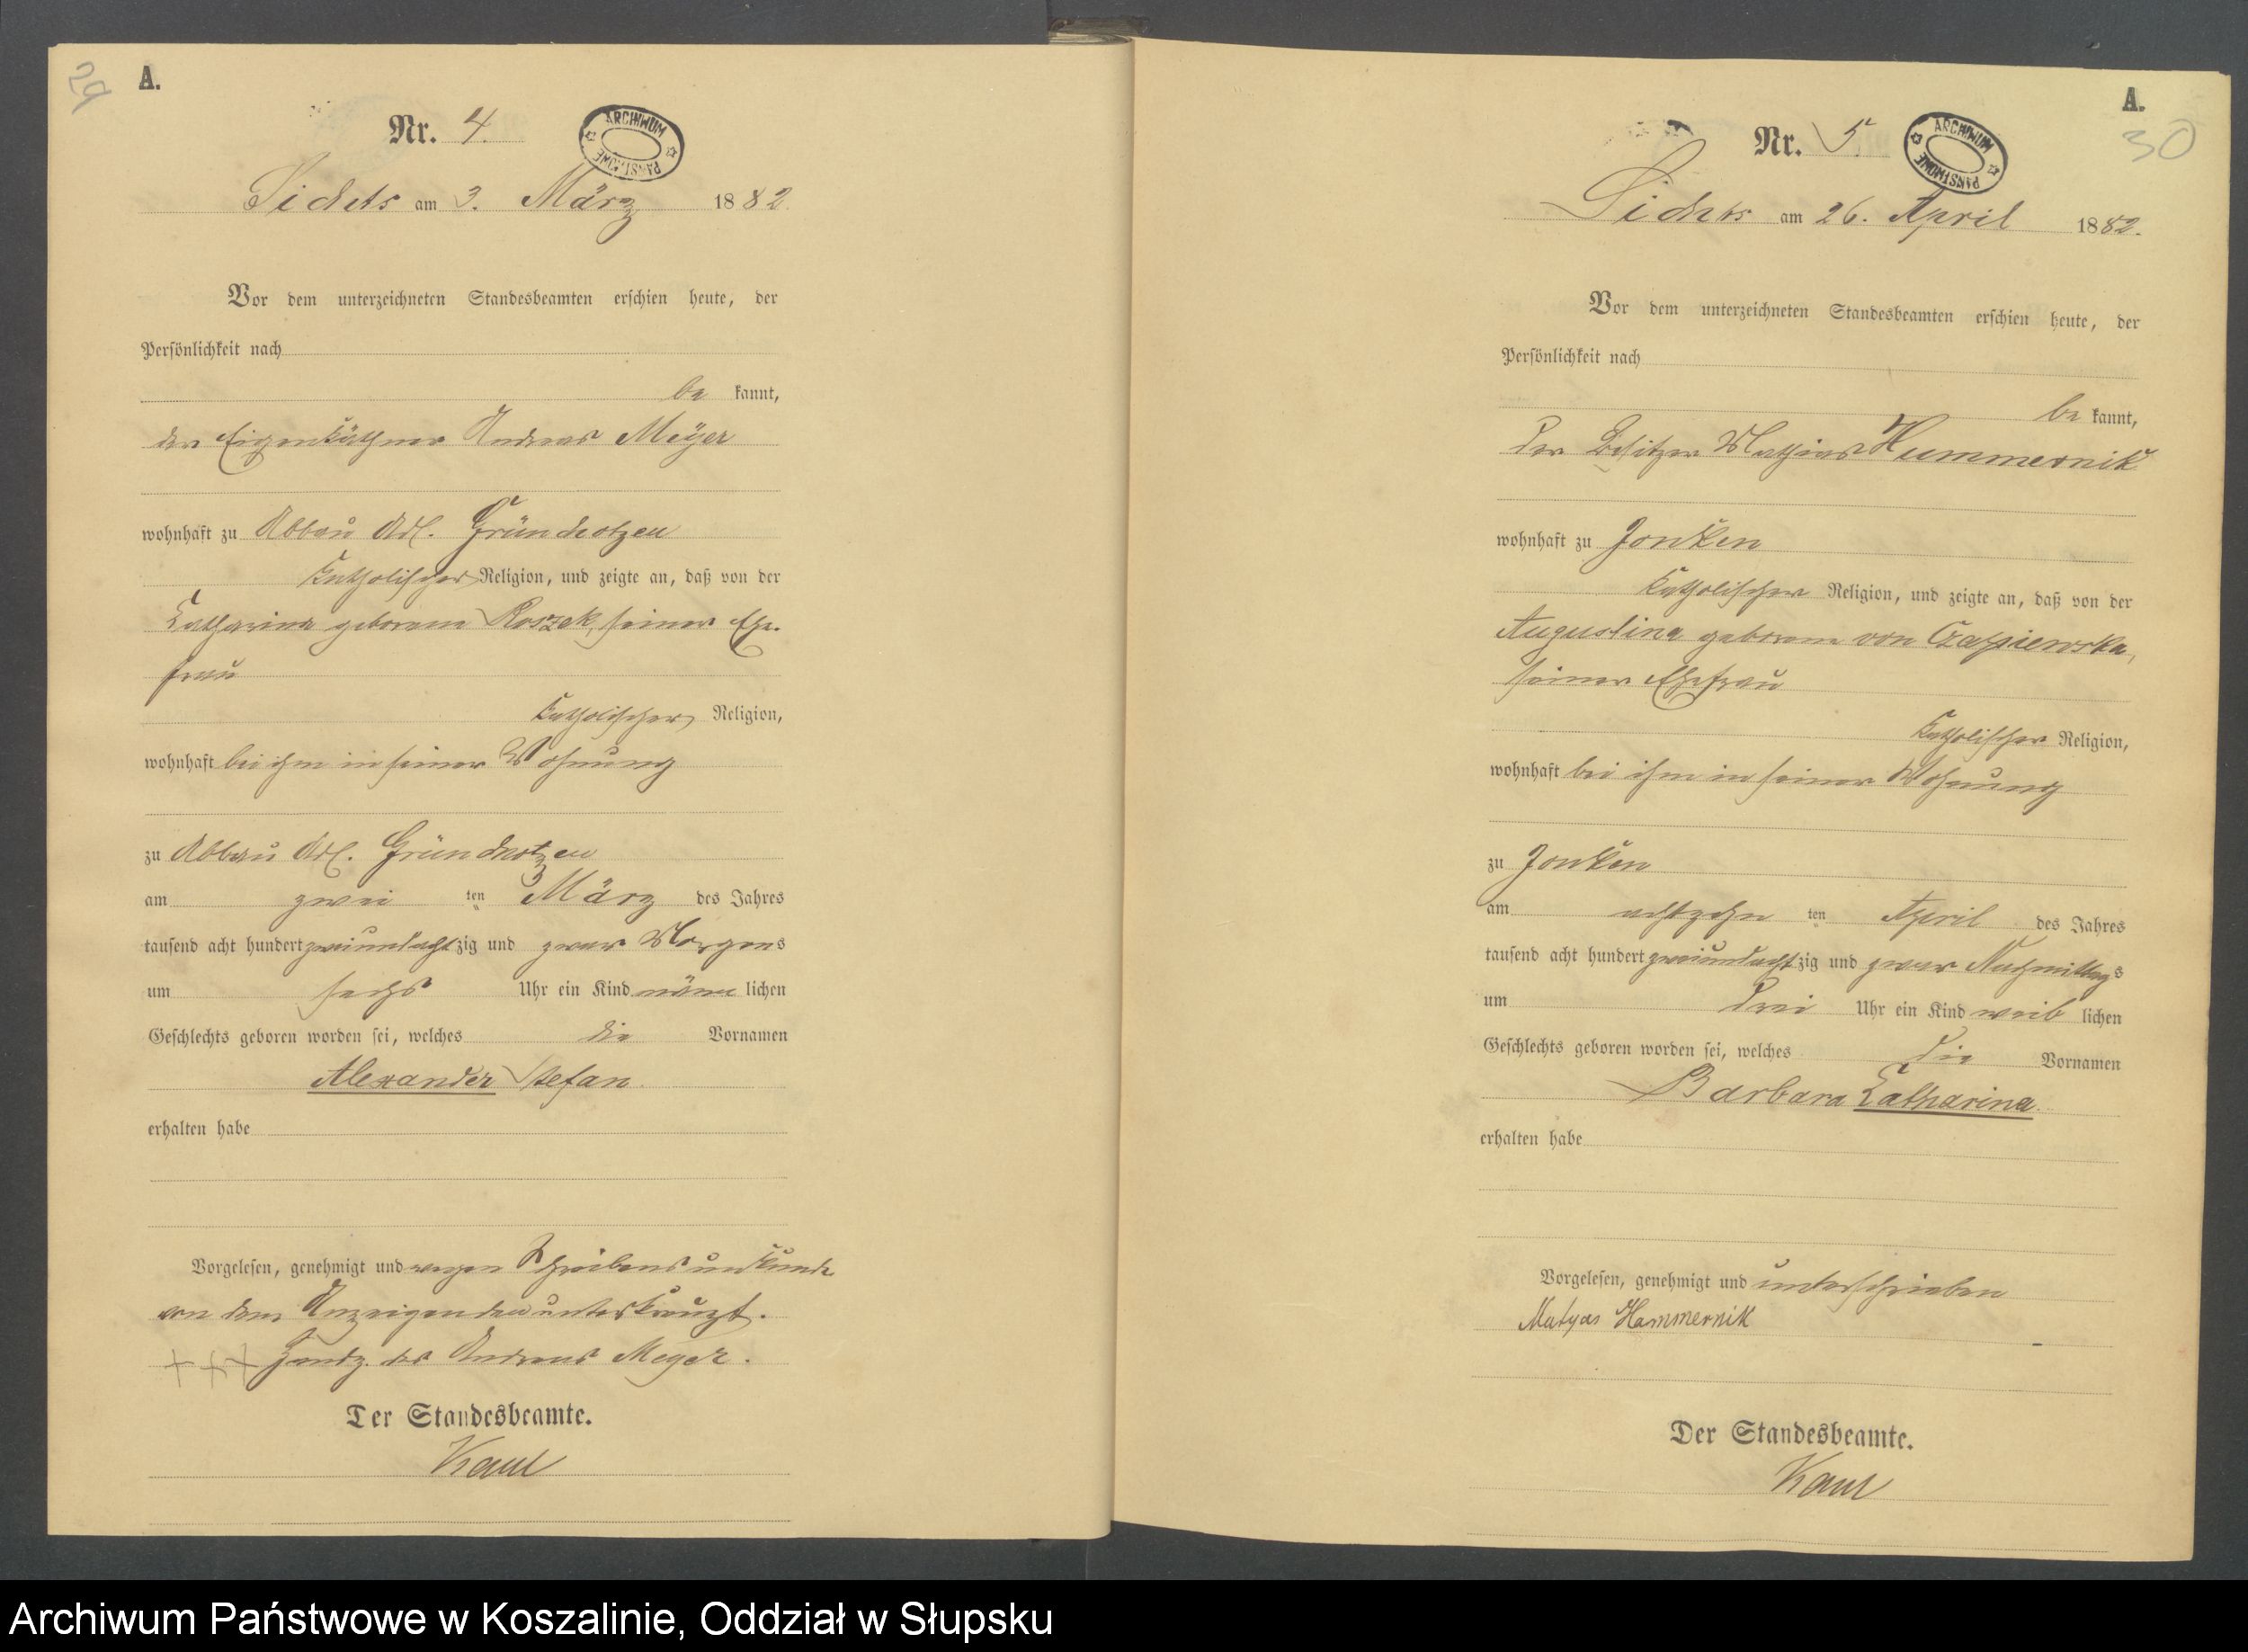 29
A.
Nr. 4.
ARCHIWUM PAŃSTWOWE
Sichts am 3. März 1882.
Vor dem unterzeichneten Standesbeamten erschien heute, der
Persönlichkeit nach
be kannt,
der Eigenkäthner Andreas Meÿer
wohnhaft zu Abbau Adl. Gründchotzen
katholischer Religion, und zeigte an, daß von der
Catharina geborene Roszek, seiner Ehe-
frau
katholischer Religion,
wohnhaft bei ihm in seiner Wohnung
zu Abbau Adl. Gründchotzen
am zwei ten März des Jahres
tausend acht hundert zweiundachtzig und zwar Morgens
um sechs Uhr ein Kind männlichen
Geschlechts geboren worden sei, welches die Vornamen
Alexander Stefan.
erhalten habe
Vorgelesen, genehmigt und wegen Schreibensunkunde
von dem Anzeigenden unterkreuzt.
+++ Handz. des Andreas Meyer.
Der Standesbeamte.
Kaul
A.
30
Nr. 5.
ARCHIWUM PAŃSTWOWE
Sichts am 26. April 1882.
Vor dem unterzeichneten Standesbeamten erschien heute, der
Persönlichkeit nach
be kannt,
der Besitzer Mathias Hummernik
wohnhaft zu Jonken
katholischer Religion, und zeigte an, daß von der
Augustina geborene von Czapiewska,
seiner Ehefrau
katholischer Religion,
wohnhaft bei ihm in seiner Wohnung
zu Jonken
am achtzehn ten April des Jahres
tausend acht hundert zweiundachtzig und zwar Nachmittags
um drei Uhr ein Kind weib lichen
Geschlechts geboren worden sei, welches die Vornamen
Barbara Catharina.
erhalten habe
Vorgelesen, genehmigt und unterschrieben
Matyas Hammernik
Der Standesbeamte.
Kaul
Archiwum Państwowe w Koszalinie, Oddział w Słupsku